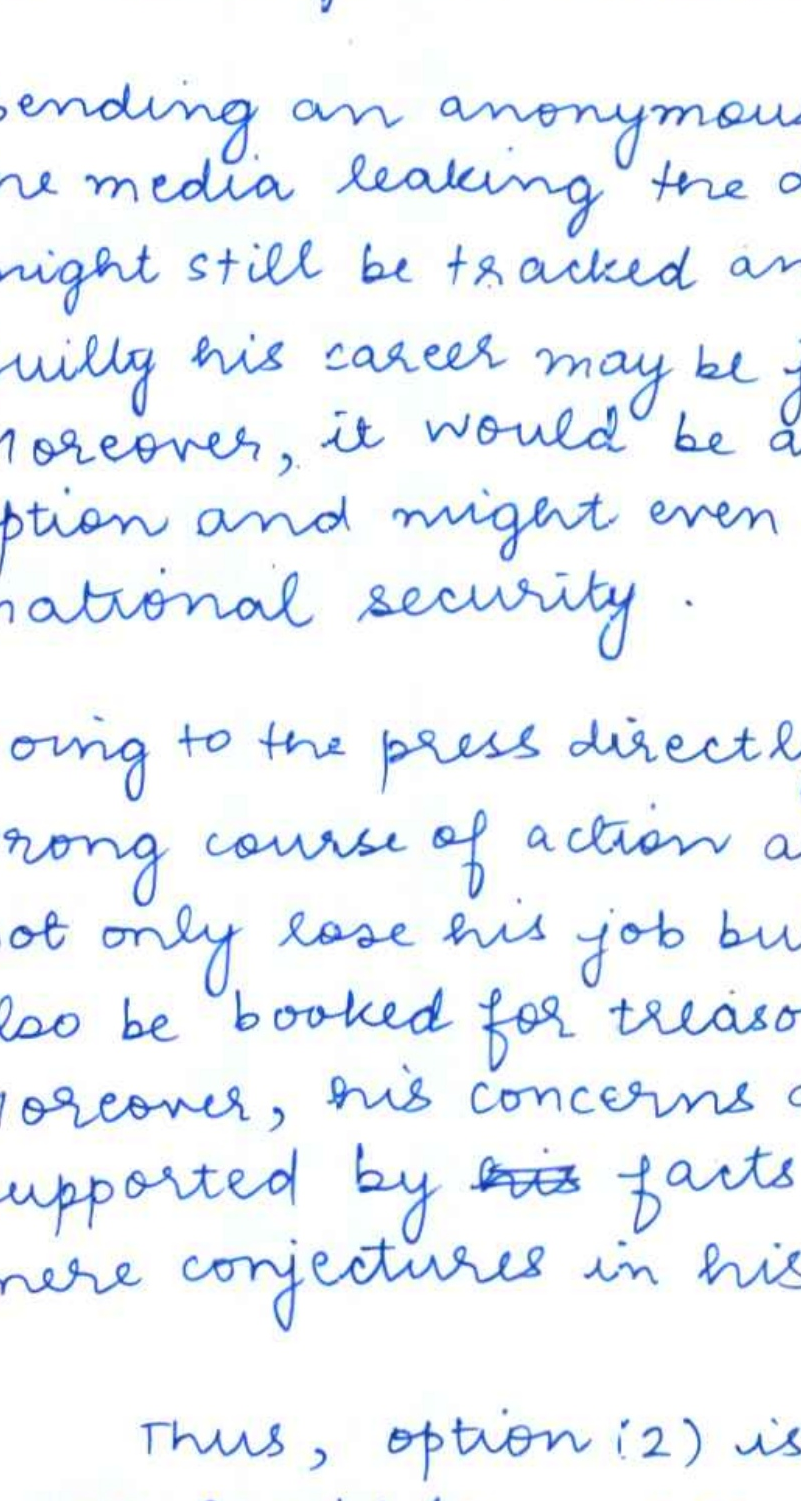 sending an anonymous
he media leaking the
might still be tracked an
uilty his career may be j
Moreover, it would be a
ption and might even
national security.
oing to the press directl
rong course of action a
ot only lose his job bu
lso be booked for treaso
oreover, his concerns
upported by his facts
mere conjectures in his
Thus, option (2) is